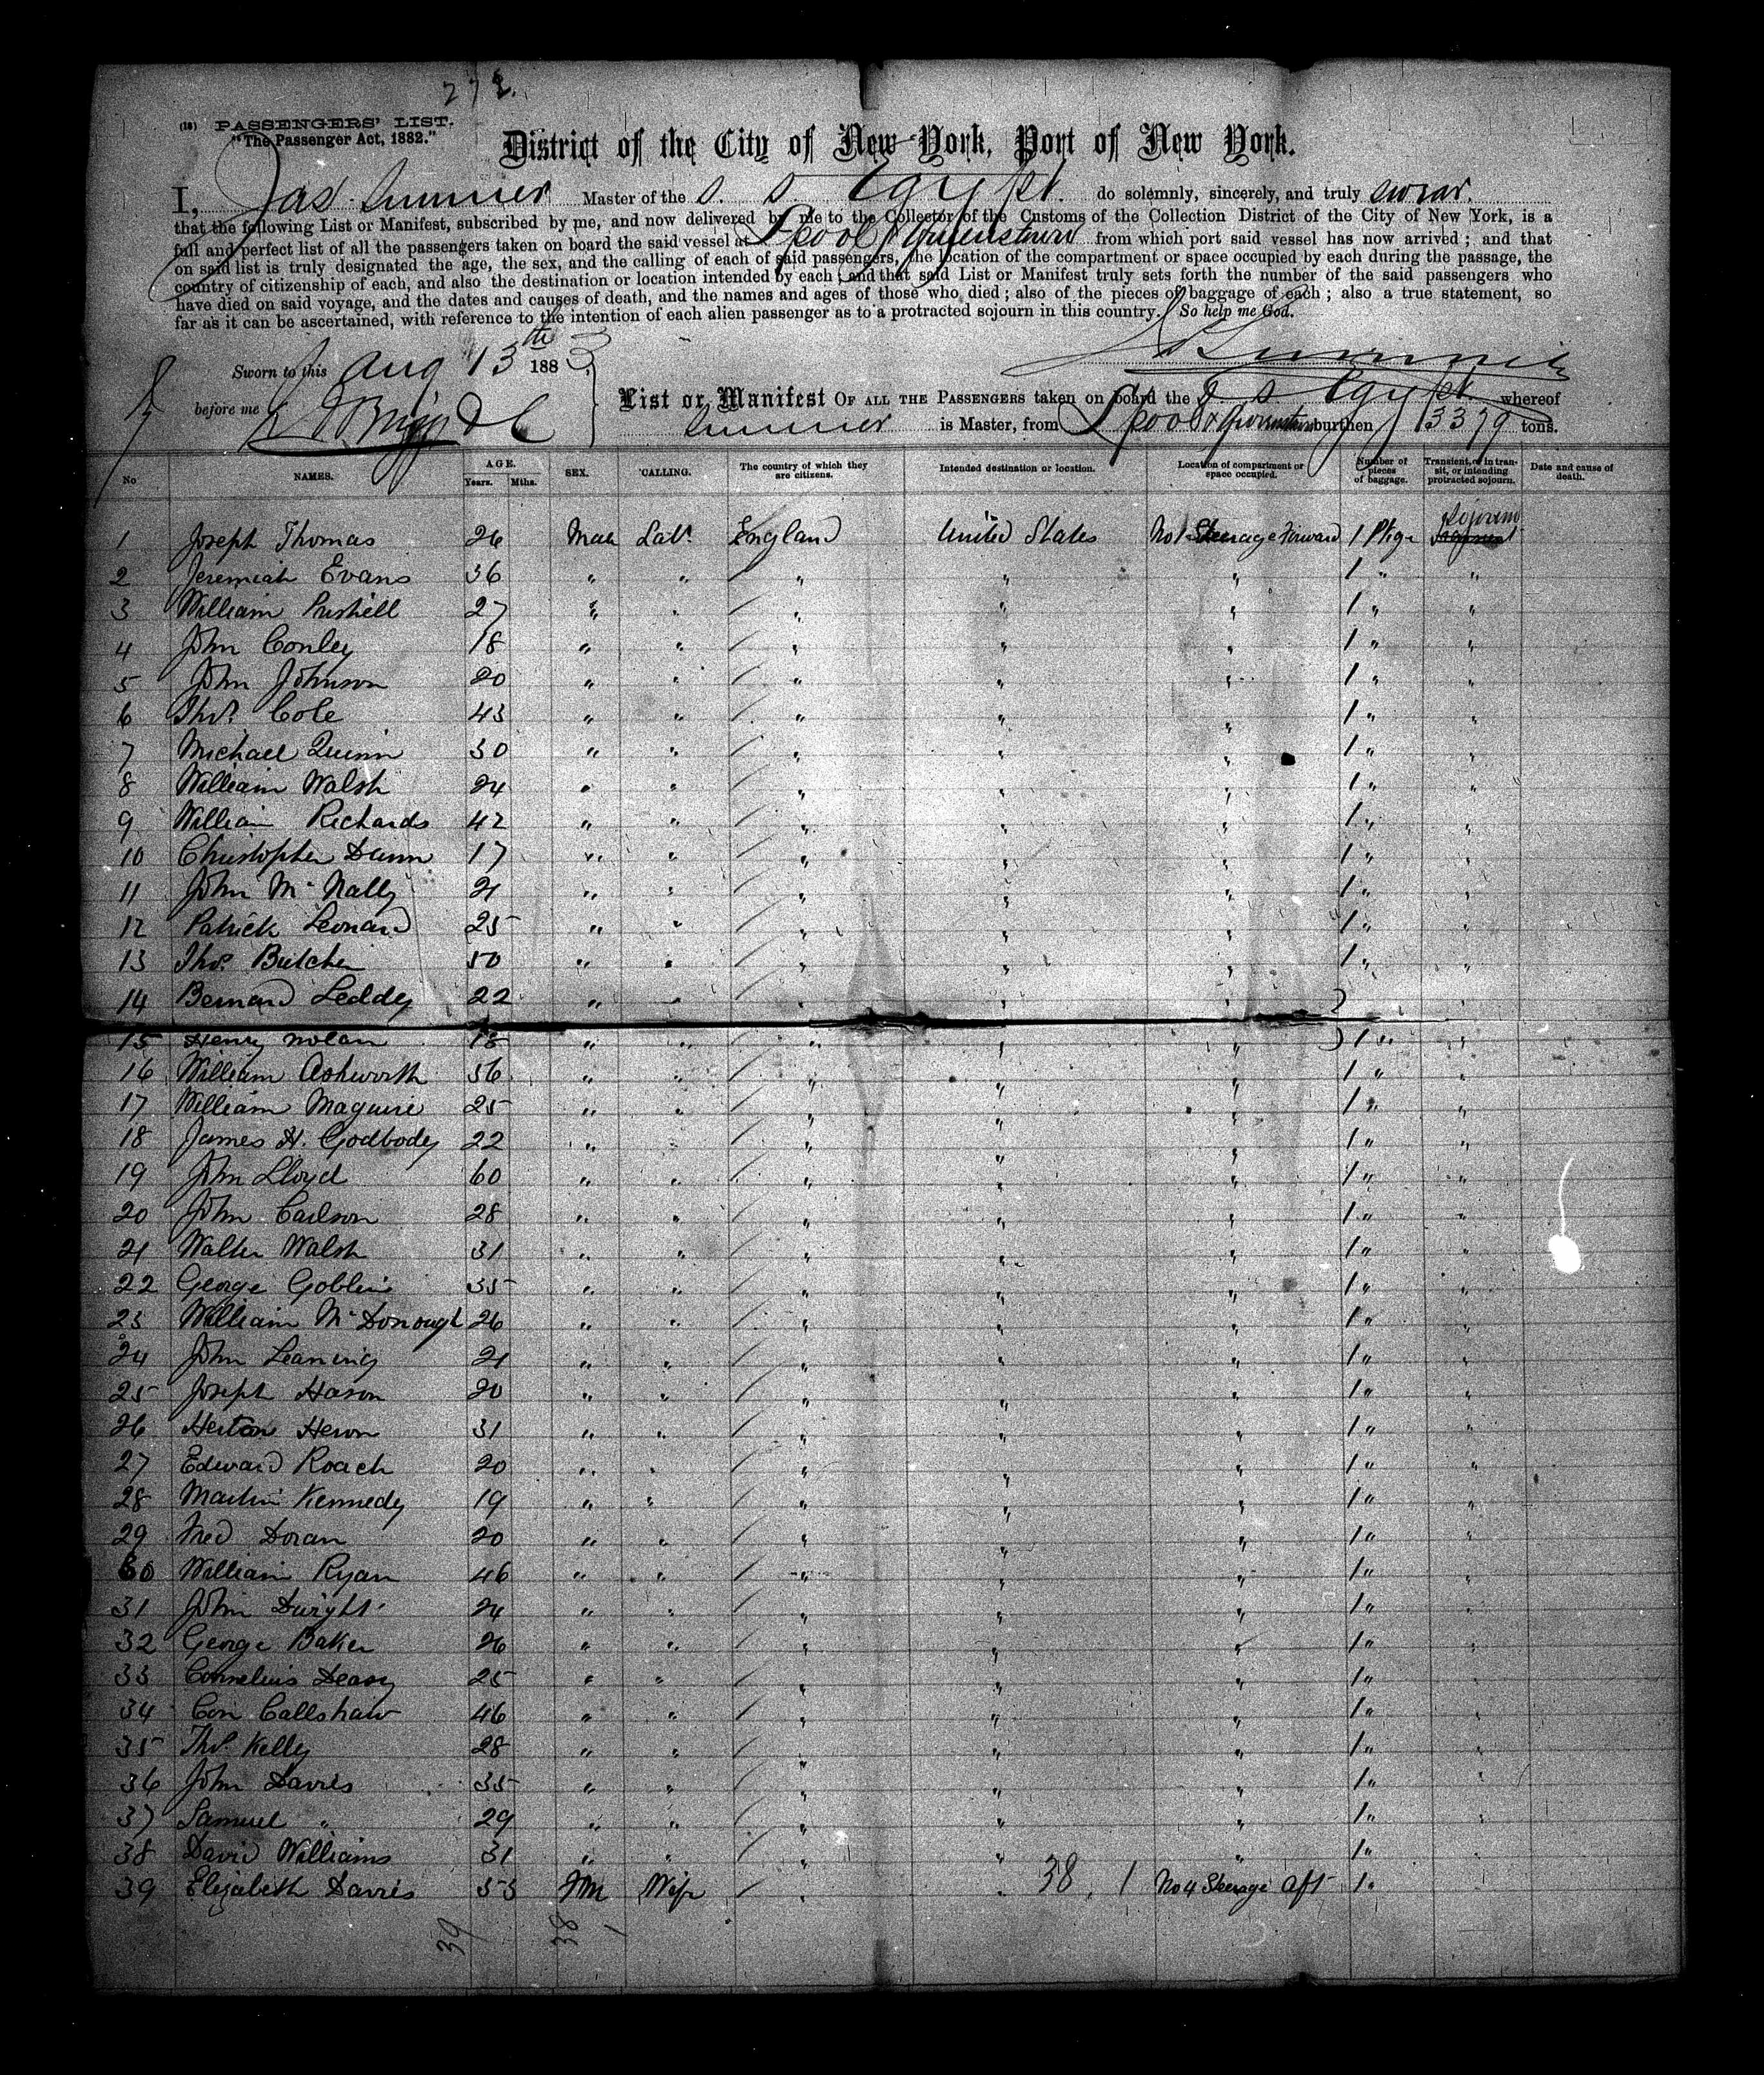 272.
(18) PASSENGERS' LIST.
"The Passenger Act, 1882."
District of the City of New-York, Port of New York.
I, Jas Sumner Master of the S. S. Egypt do solemnly, sincerely, and truly swear
that the following List or Manifest, subscribed by me, and now delivered by me to the Collector of the Customs of the Collection District of the City of New York, is a
full and perfect list of all the passengers taken on board the said vessel at Lpool & Queenstown from which port said vessel has now arrived; and that
on said list is truly designated the age, the sex, and the calling of each of said passengers, the location of the compartment or space occupied by each during the passage, the
country of citizenship of each, and also the destination or location intended by each; and that said List or Manifest truly sets forth the number of the said passengers who
have died on said voyage, and the dates and causes of death, and the names and ages of those who died; also of the pieces of baggage of each; also a true statement, so
far as it can be ascertained, with reference to the intention of each alien passenger as to a protracted sojourn in this country. So help me God.
Sworn to this Aug 13th 1883
before me
List or Manifest OF ALL THE PASSENGERS taken on board the S S Egypt whereof
Sumner is Master, from Lpool & Queenstown burthen 3379 tons.
No NAMES. AGE. Years. Mths. SEX. CALLING. The country of which they are citizens. Intended destination or location. Location of compartment or space occupied. Number of pieces of baggage. Transient, or in transit, or intending protracted sojourn. Date and cause of death.
1 Joseph Thomas 26 Male Labr England United States No 1 Steerage Forward 1 Pkge Sojourn
2 Jeremiah Evans 36 " " " " " 1 " "
3 William 27 " " " " " 1 " "
4 John Conley 18 " " " " " 1 " "
5 John Johnson 20 " " " " " 1 " "
6 Thos. Cole 43 " " " " " 1 " "
7 Michael Quinn 30 " " " " " 1 " "
8 William Walsh 24 " " " " " 1 " "
9 William Richards 42 " " " " " 1 " "
10 Christopher Dunn 17 " " " " " 1 " "
11 John McNally 21 " " " " " 1 " "
12 Patrick Leonard 25 " " " " " 1 " "
13 Thos. Butcher 50 " " " " " 1 " "
14 Bernard Leddy 22 " " " " " "
15 Henry Nolan 18 " " " " " 1 " "
16 William Ashworth 36 " " " " " 1 " "
17 William Maguire 25 " " " " " 1 " "
18 James H. Godbody 22 " " " " " 1 " "
19 John Lloyd 60 " " " " " 1 " "
20 John Carlson 28 " " " " " 1 " "
21 Walter Walsh 31 " " " " " 1 " "
22 George Goblin 35 " " " " " 1 " "
23 William McDonough 26 " " " " " 1 " "
24 John Leaning 21 " " " " " 1 " "
25 Joseph Hason 20 " " " " " 1 " "
26 Heron 31 " " " " " 1 " "
27 Edward Roach 20 " " " " " 1 " "
28 Martin Kennedy 19 " " " " " 1 " "
29 Ned Doran 20 " " " " " 1 " "
30 William Ryan 46 " " " " " 1 " "
31 John Dwight 24 " " " " " 1 " "
32 George Baker 26 " " " " " 1 " "
33 Cornelius Deasy 25 " " " " " 1 " "
34 Con Callshaw 46 " " " " " 1 " "
35 Thos. Kelly 28 " " " " " 1 " "
36 John Davies 35 " " " " " 1 " "
37 Samuel " 29 " " " " " 1 " "
38 David Williams 31 " " " " " 1 "
39 Elizabeth Davies 53 Fm Wife " " 38 1 No 4 Steerage Aft 1 "
39 38 1